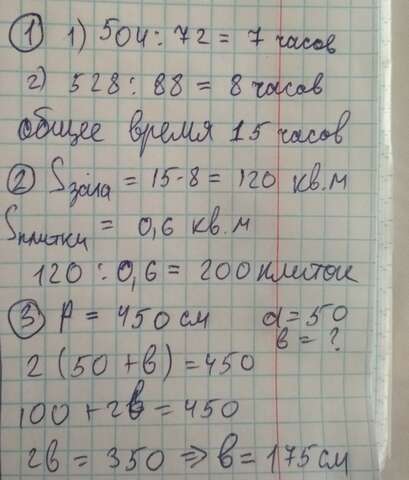 ① 1) 504 : 72 = 7 часов
2) 528 : 88 = 8 часов
общее время 15 часов
② Sзала = 15·8 = 120 кв.м
Sплитки = 0,6 кв.м
120 : 0,6 = 200 плиток
③ P = 450 см a = 50
в = ?
2 (50 + в) = 450
100 + 2в = 450
2в = 350 => в = 175 см